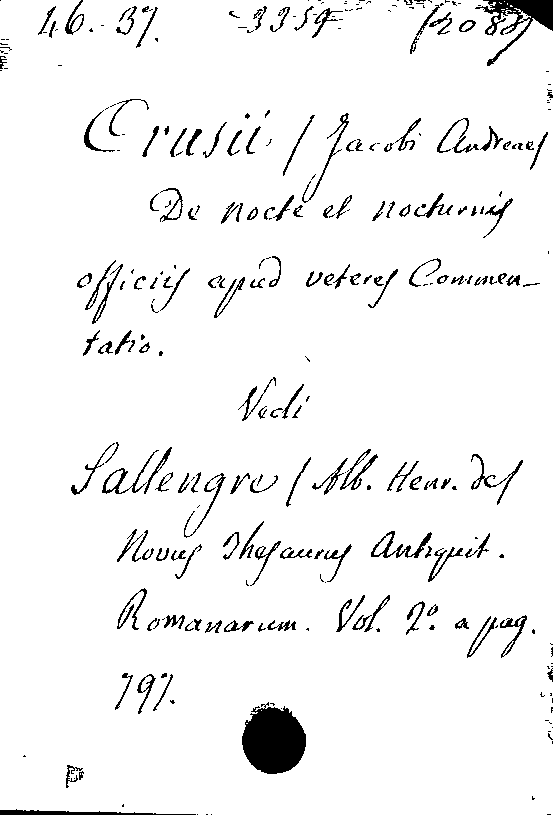 46.-37. 3359 (2088)
Crusii / Jacobi Andreae/
De nocte et nocturnis
officiis apud veteres Commen-
tatio.
Vedi
Sallengre / Alb. Henr. de/
Novus Thesaurus Antiquit.
Romanarum. Vol. 2º. a pag.
797.